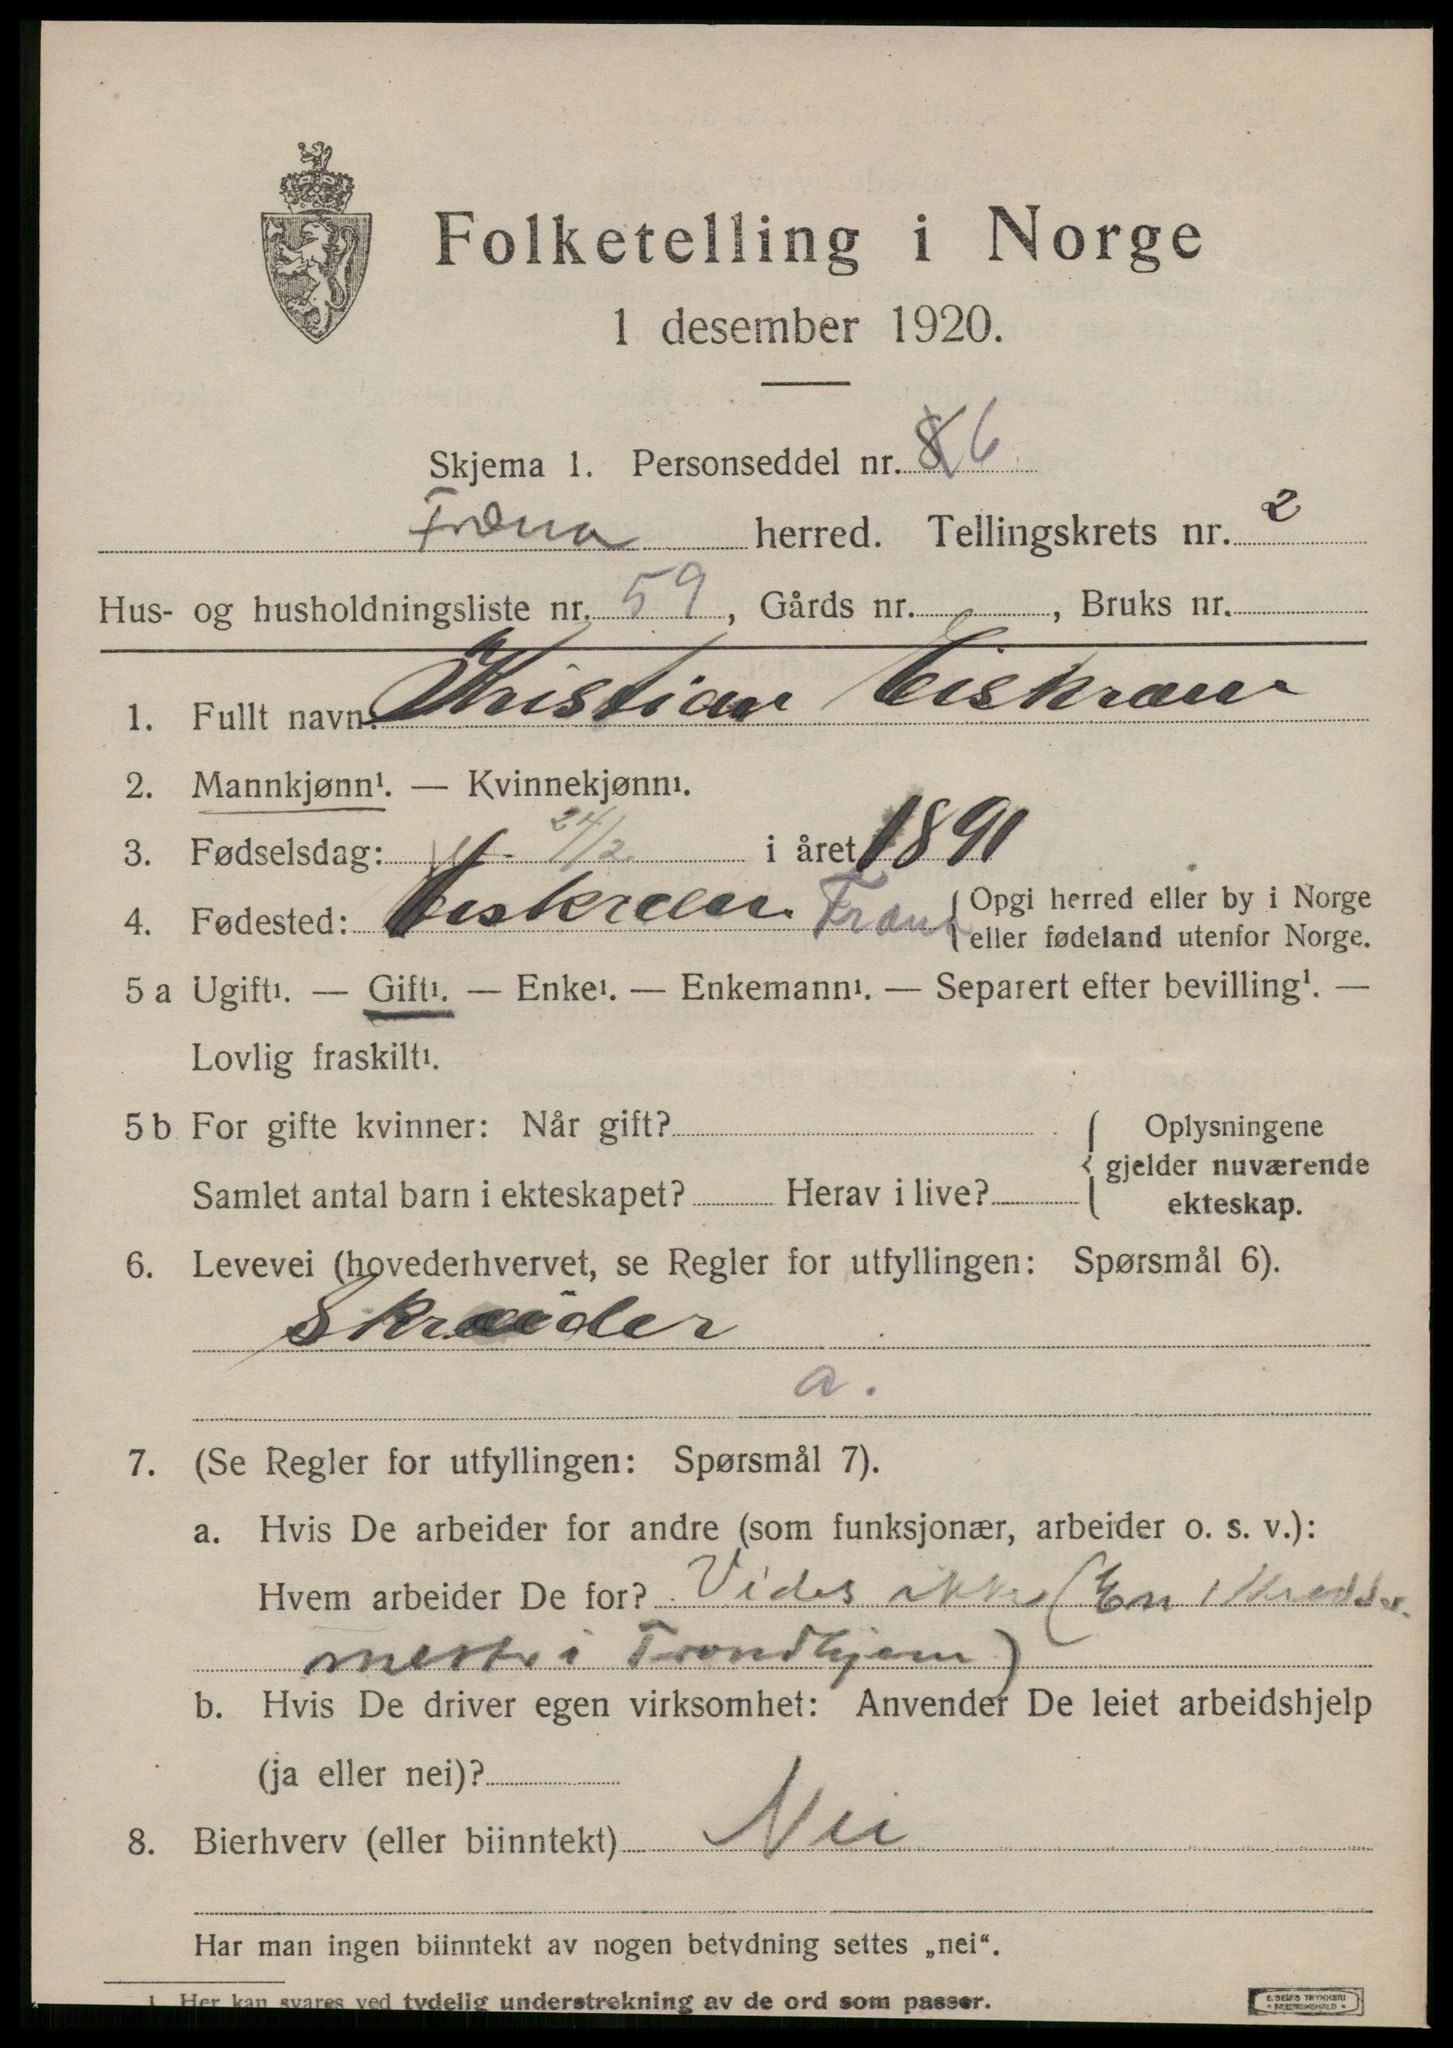 Folketelling i Norge
1 desember 1920.
Skjema 1. Personseddel nr. 8 6
Fræna herred. Tellingskrets nr. 2
Hus- og husholdningsliste nr. 59, Gårds nr. , Bruks nr.
1. Fullt navn: Kristian Eiskrem
2. Mannkjønn¹. — Kvinnekjønn¹.
3. Fødselsdag: 24/2. i året 1891
4. Fødested: Eiskrem Fræna {Opgi herred eller by i Norge
eller fødeland utenfor Norge.
5 a Ugift¹. — Gift¹. — Enke¹. — Enkemann¹. — Separert efter bevilling¹. —
Lovlig fraskilt¹.
5 b For gifte kvinner: Når gift? { Oplysningene
gjelder nuværende
Samlet antal barn i ekteskapet? Herav i live? ekteskap.
6. Levevei (hovederhvervet, se Regler for utfyllingen: Spørsmål 6).
Skræder
a.
7. (Se Regler for utfyllingen: Spørsmål 7).
a. Hvis De arbeider for andre (som funksjonær, arbeider o. s. v.):
Hvem arbeider De for? Vides ikke (En skredder
mester i Trondhjem)
b. Hvis De driver egen virksomhet: Anvender De leiet arbeidshjelp
(ja eller nei)?
8. Bierhverv (eller biinntekt) Nei
Har man ingen biinntekt av nogen betydning settes „nei“.
1. Her kan svares ved tydelig understrekning av de ord som passer.
E. SEM'S TRYKKERI
FREDRIKSHALD